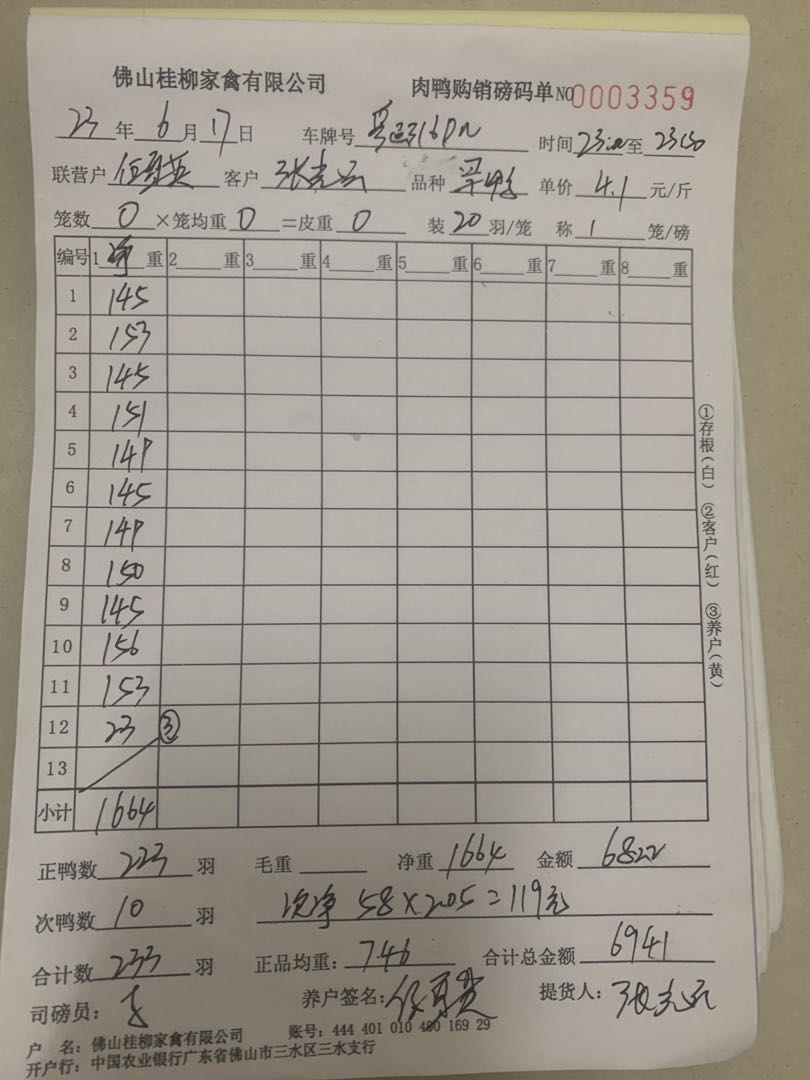 佛山桂柳家禽有限公司 肉鸭购销磅码单 NO 0003359
23 年 6 月 17 日 车牌号 时间 23:00 至 23:30
联营户 客户 张 品种 单价 4.1 元/斤
笼数 0 ×笼均重 0 =皮重 0 装 20 羽/笼 称 1 笼/磅
编号 1 净 重 2 重 3 重 4 重 5 重 6 重 7 重 8 重
1 145
2 153
3 145
4 151
5 149
6 145
7 149
8 150
9 145
10 156
11 153
12 23 ③
13
小计 1664
正鸭数 223 羽 毛重 净重 1664 金额 6822
次鸭数 10 羽 次净 58×2.05=119元
合计数 233 羽 正品均重: 7.46 合计总金额 6941
司磅员: 养户签名: 提货人: 张
户 名: 佛山桂柳家禽有限公司 账号: 444 401 010 400 169 29
开户行: 中国农业银行广东省佛山市三水区三水支行
①存根(白) ②客户(红) ③养户(黄)